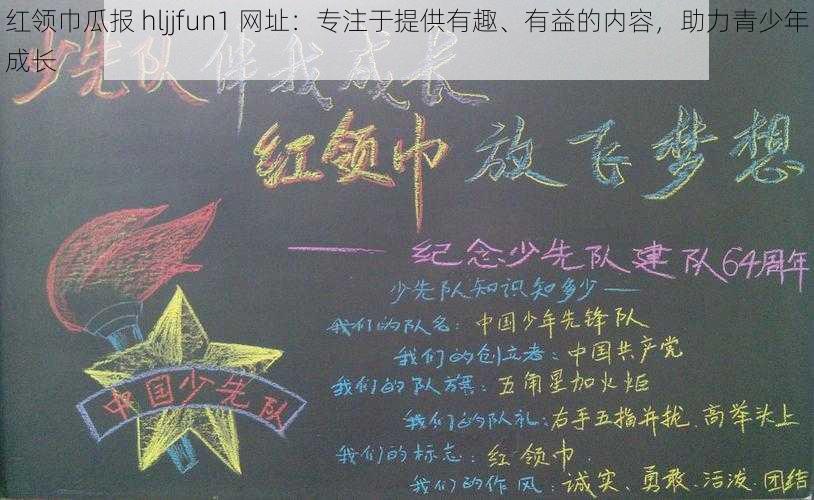 红领巾瓜报 hljjfun1 网址：专注于提供有趣、有益的内容，助力青少年
成长
少先队伴我成长
红领巾放飞梦想
——纪念少先队建队64周年
少先队知识知多少——
我们的队名：中国少年先锋队
我们的创立者：中国共产党
我们的队旗：五角星加火炬
我们的队礼：右手五指并拢.高举头上
我们的标志：红领巾.
我们的作风：诚实、勇敢、活泼、团结
中国少先队